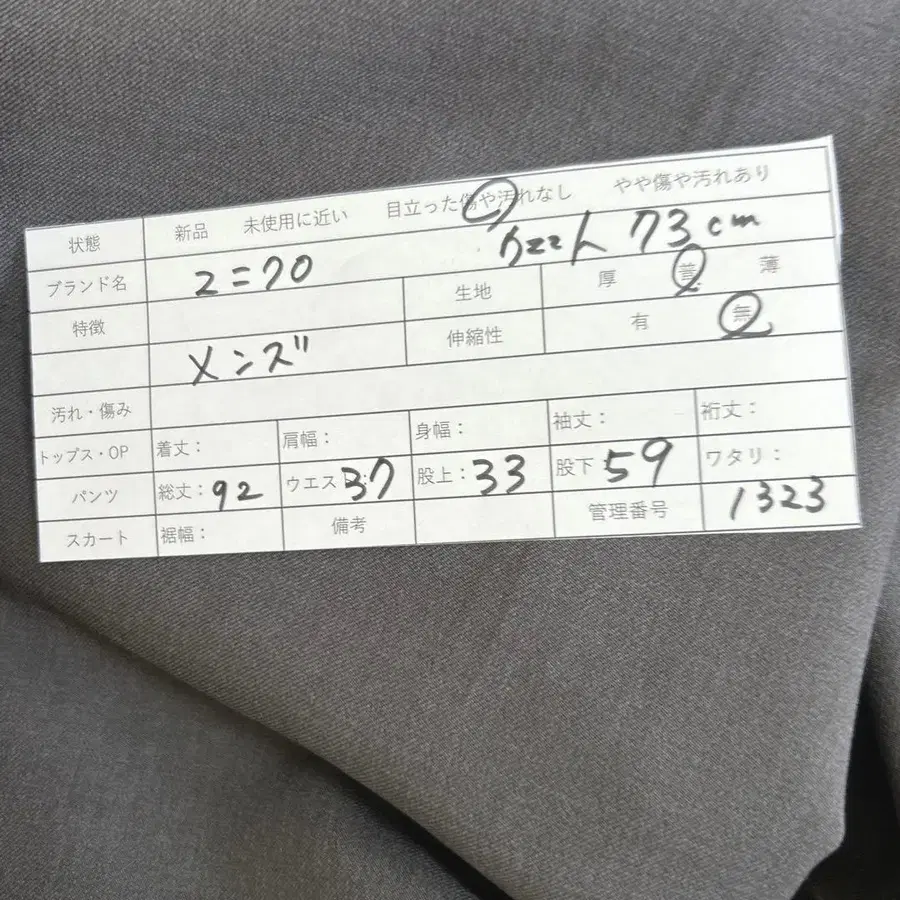 状態 新品 未使用に近い 目立った傷や汚れなし やや傷や汚れあり
ブランド名 ユニクロ ウエスト 73cm
特徴 生地 厚 普 薄
メンズ 伸縮性 有 無
汚れ・傷み
トップス・OP 着丈: 肩幅: 身幅: 袖丈: 裄丈:
パンツ 総丈:92 ウエスト:37 股上:33 股下59 ワタリ:
スカート 裾幅: 備考 管理番号 1323